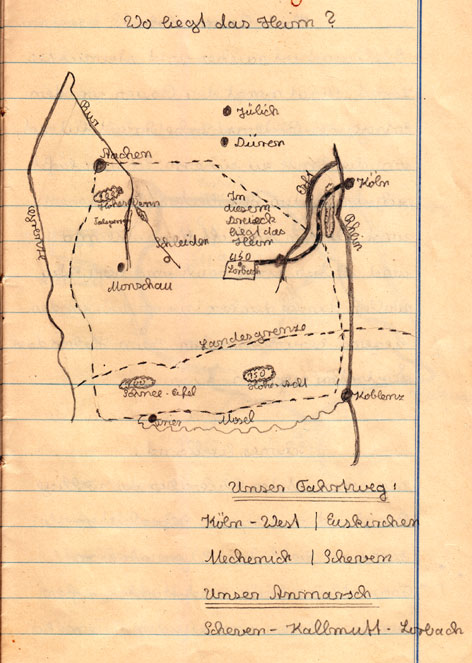 Wo liegt das Heim?
Jülich
Düren
Rur
Aachen
Erft
Köln
Rhein
Hohes Venn
In
diesem
Dreieck
liegt das
Heim
450
Lorbach
Schleiden
Monschau
Landesgrenze
700
Schnee-Eifel
750
Hohe-Acht
Koblenz
Trier
Mosel
Unser Fahrtweg:
Köln-West | Euskirchen
Mechenich | Scheven
Unser Anmarsch
Scheven-Kallmuth-Lorbach